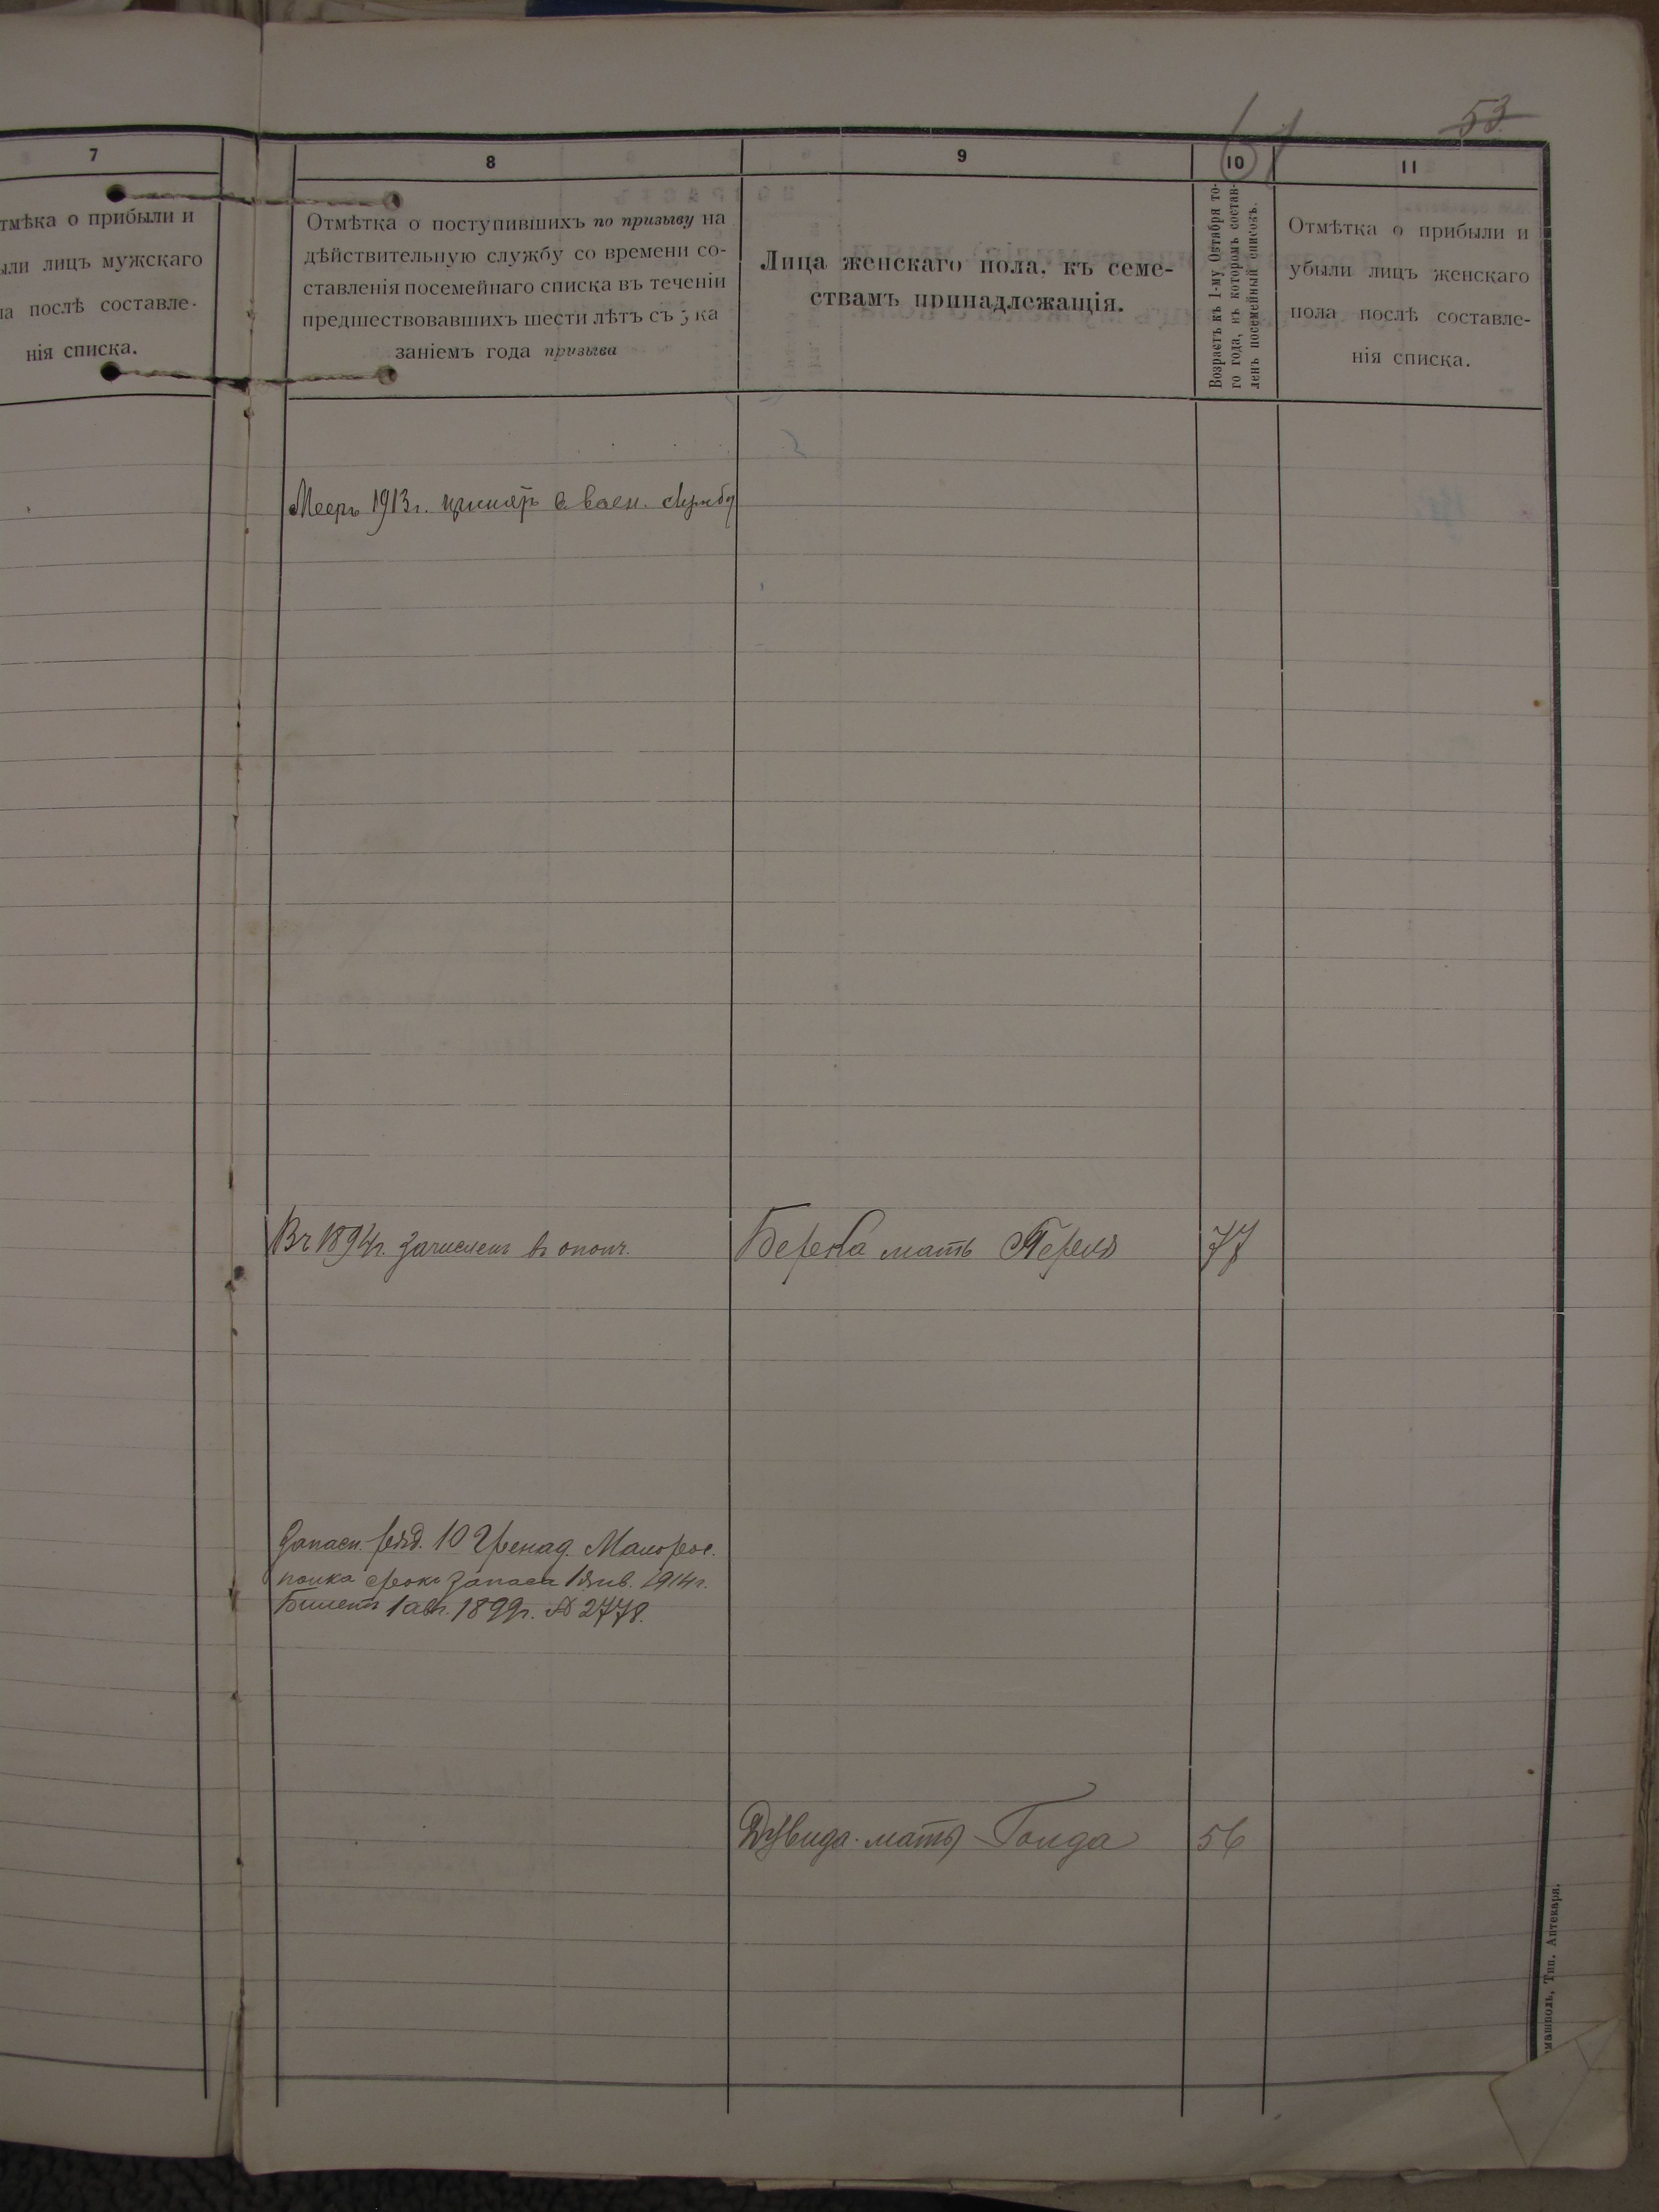 53
61
7
тмѣка о прибыли и
ыли лицъ мужскаго
ла послѣ составле-
нія списка.
8
Отмѣтка о поступившихъ по призыву на
дѣйствительную службу со времени со-
ставленія посемейнаго списка въ теченіи
предшествовавшихъ шести лѣтъ съ ука
заніемъ года призыва
9
Лица женскаго пола, къ семе-
ствамъ принадлежащія.
10
Возрастъ къ 1-му Октября то-
го года, въ которомъ состав-
ленъ посемейный списокъ.
11
Отмѣтка о прибыли и
убыли лицъ женскаго
пола послѣ составле-
нія списка.
Мееръ 1913г. принятъ в воен. службу
Въ 1894г. зачисленъ въ ополч.
Берка мать Перля 77
Запасн. ряд. 10 Гренад. Малорос.
полка срокъ запаса 1 Янв. 1914г.
Билетъ 1 авг. 1899г. № 2778.
Дувида мать Голда 56
машполь, Тип. Аптекаря.